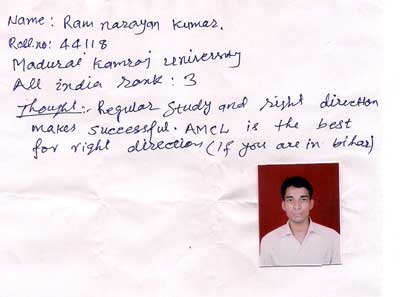 Name: Ram narayan Kumar.
Roll.no: 44118
Madurai Kamraj University
All india rank: 3
Thought:- Regular Study and right direction
makes successful. AMCL is the best
for right direction (If you are in bihar)